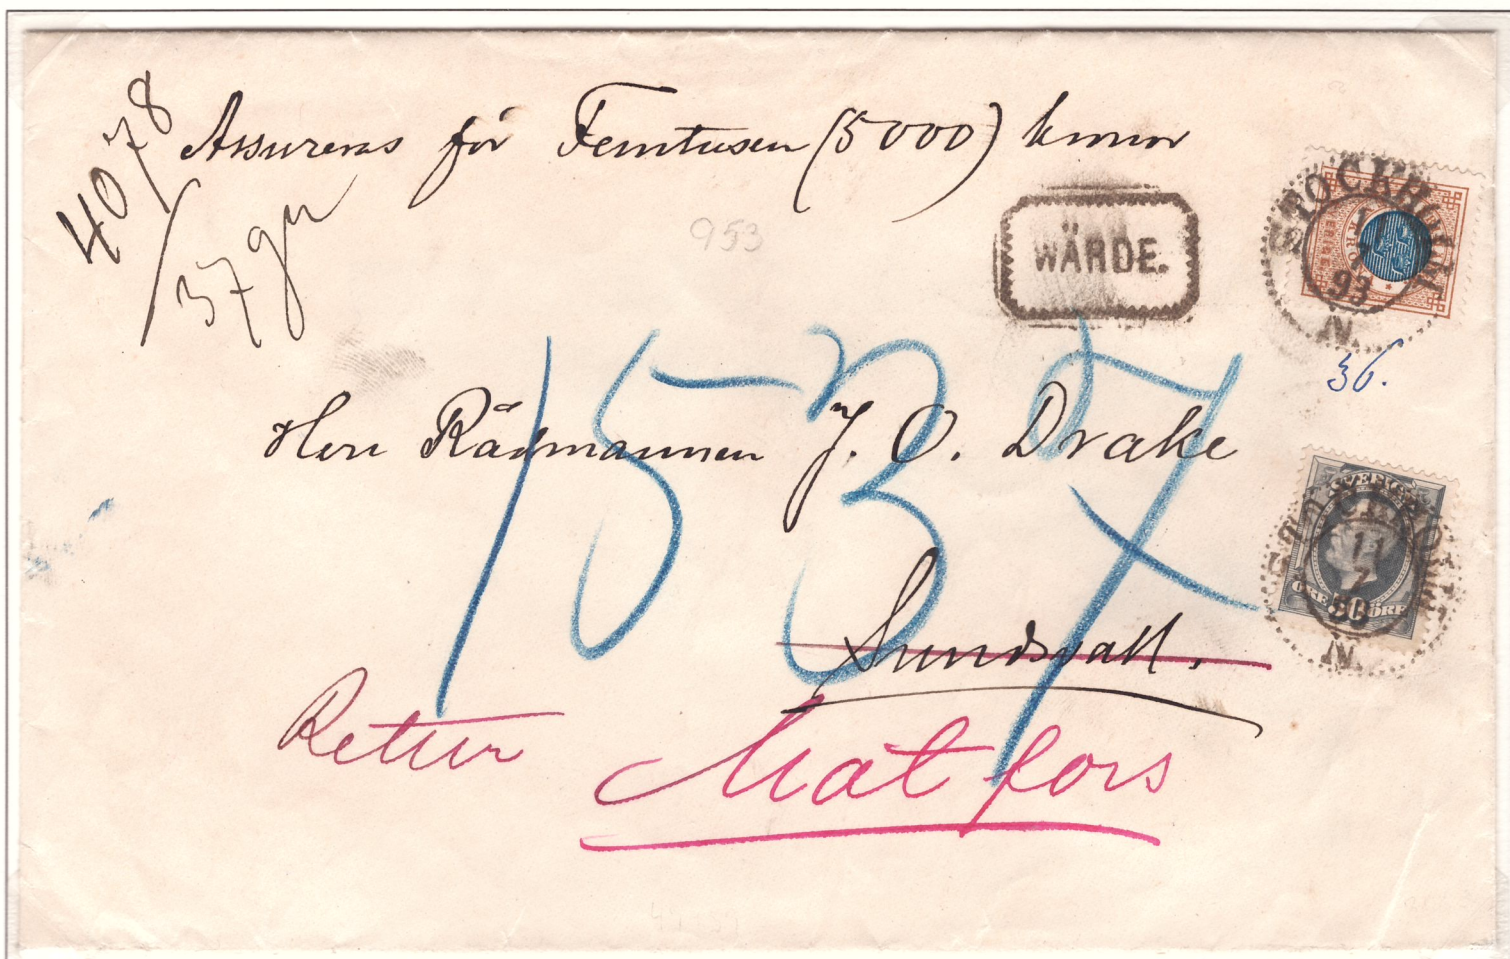 4078
37 gr
Assurens för Femtusen (5000) kronor
953
WÄRDE.
STOCKHOLM
1
93
N.
36.
1537
Herr Rådmannen J. O. Drake
SVERIGE
STOCKHOLM
11
7
ÖRE ÖRE
N.
Sundsvall.
Retur Matfors